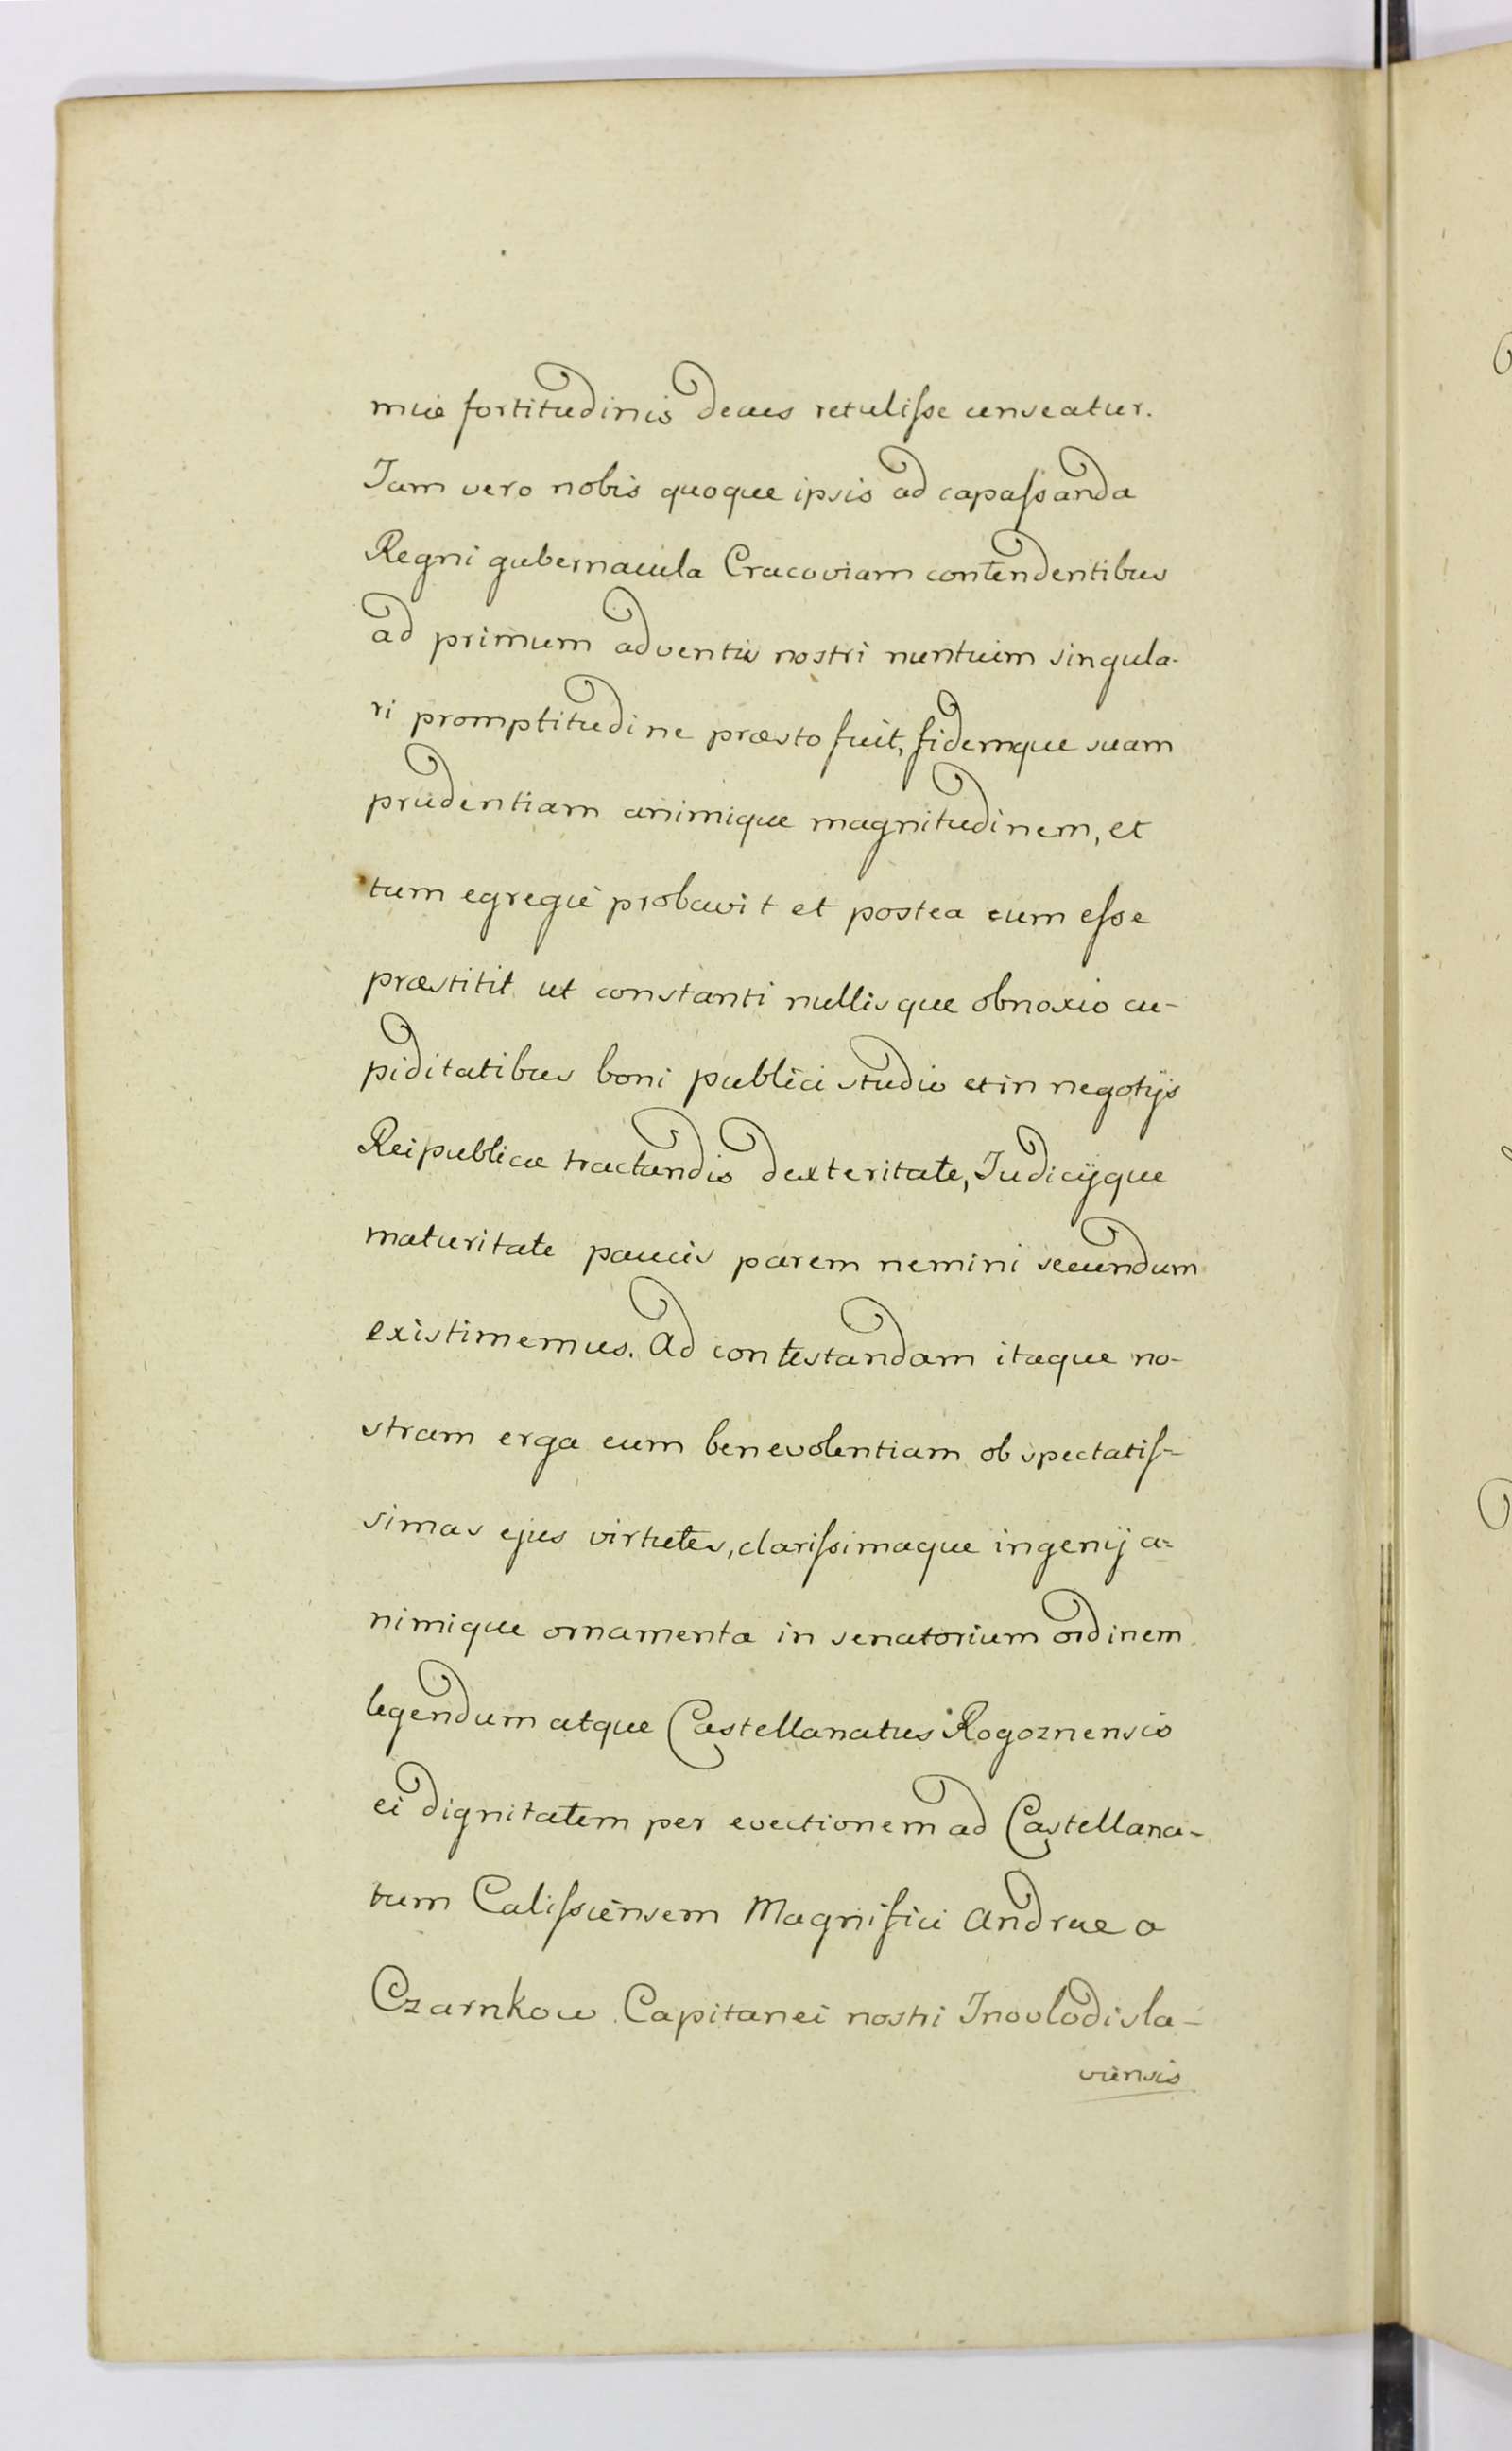 miæ fortitudinis decus retulisse censeatur.
Jam vero nobis quoque ipsis ad capassanda
Regni gubernacula Cracoviam contendentibus
ad primum adventus nostri nuntium singula-
ri promptitudine præsto fuit, fidemque suam
prudentiam animique magnitudinem, et
tum egregie probavit et postea eum esse
præstitit ut constanti nullisque obnoxio cu-
piditatibus boni publici studio et in negotÿs
Reipublicæ tractandis dexteritate, Judicÿque
maturitate paucis parem nemini secundum
existimemus. Ad contestandam itaque no-
stram erga eum benevolentiam ob spectatis=
simas ejus virtutes, clarissimaque ingenÿ a=
nimique ornamenta in senatorium ordinem
legendum atque Castellanatus Rogoznensis
ei dignitatem per evectionem ad Castellana-
tum Calissiensem Magnifici Andreæ a
Czarnkow Capitanei nostri Inovlodisla-
viensis